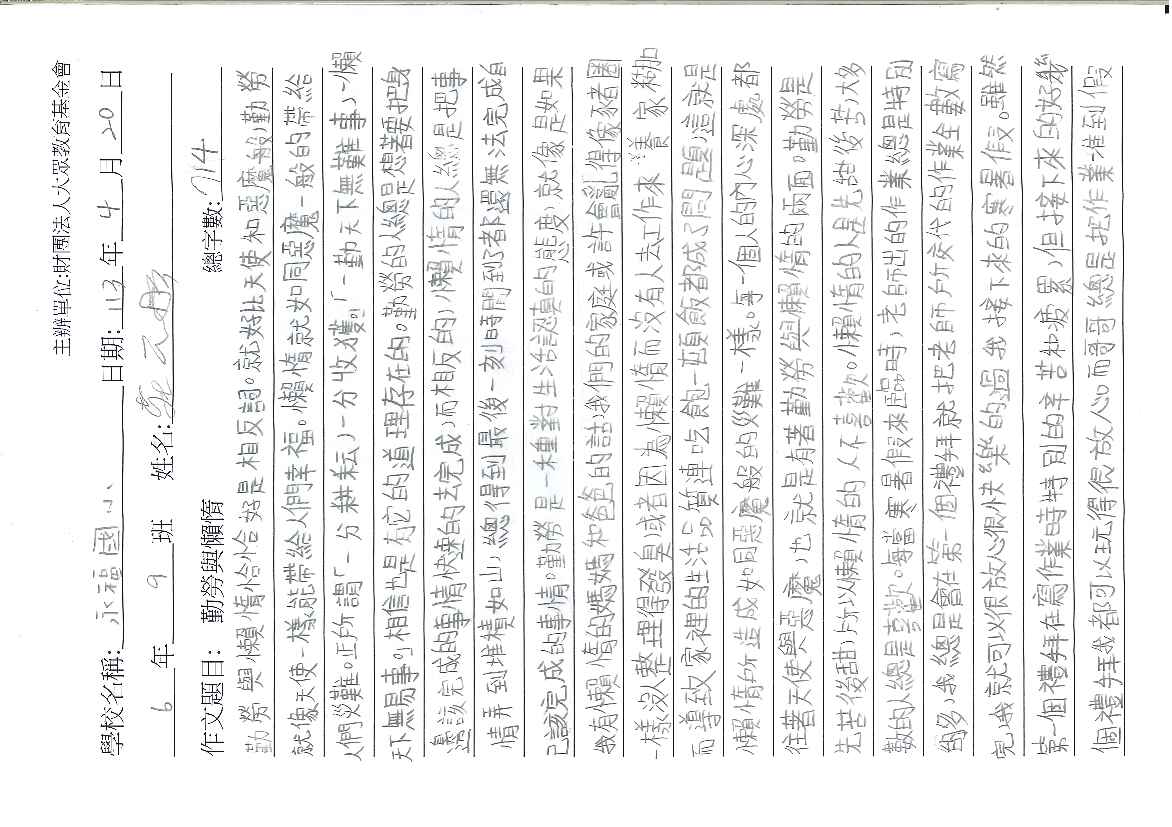 主辦單位:財團法人大眾教育基金會
學校名稱:永福國小 日期:113年4月20日
6年9班 姓名:
作文題目: 勤勞與懶惰 總字數:714
勤勞與懶惰恰恰好是相反詞。就好比天使和惡魔般,勤勞
就像天使一樣能帶給人們幸福。懶惰就如同惡魔一般的帶給
人們災難。正所謂「一分耕耘,一分收獲」「一勤天下無難事,一懶
天下無易事」相信也是有它的道理存在的。勤勞的人總是想著要把身
邊該完成的事情快速的去完成,而相販的,懶惰的人總是把事
情弄到堆積如山,總得到最後一刻時間到了都還無法完成自
己該完成的事情。勤勞是一種對生活認真的態度,就像是如果
我有懶惰的媽媽和爸爸的話我們的家庭或許會亂得像豬圈
一樣沒整理得發臭,或者因為懶惰而沒有人去工作來養家糊口
而導致家裡的生活品質連吃飽一頓飯都成了問題,這就是
懶惰所造成如同惡魔般的災難一樣。每一個人的內心深處都
住著天使與惡魔,也就是有著勤勞與懶惰的兩面。勤勞是
先苦後甜,所以懶惰的人不喜歡。懶惰的人是先甜後苦,大多
數的人總是喜歡。每當寒暑假來臨時,老師出的作業總是特別
的多,我總是會在第一個禮拜就把老師所交代的作業全數寫
完,我就可以很放心很快樂的過我接下來的寒暑假。雖然
第一個禮拜在寫作業時特別的辛苦和疲累,但接下來的好幾
個禮拜我都可以玩得很放心,而哥哥總是把作業堆到假